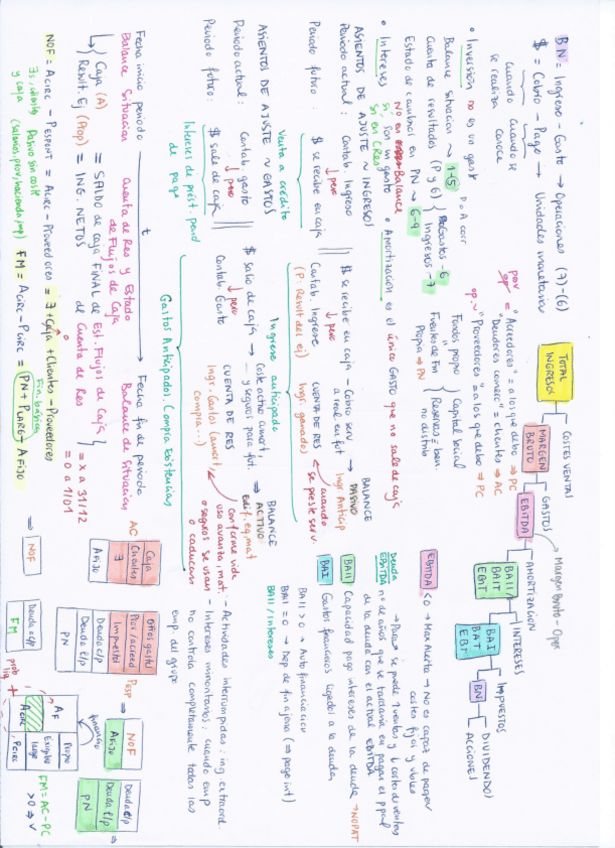 BN = Ingreso - Gasto → Operaciones (7)-(6)
$ = Cobro - Pago → Unidades monetarias
cuando se realiza
cuando se conoce
• Inversión no es un gasto
Balance Situación → 1-5
Cuenta de resultados (P y G) { Gastos - 6
Ingresos - 7
Estado de cambios en PN → 8-9
• Intereses
sí, son gasto
NO en Balance
SI en CRes
• Amortización es el único GASTO que no sale de caja
"Acreedores" = a los que debo ⇒ PC
"Deudores comerc" = clientes ⇒ AC
"Proveedores" = a los que debo ⇒ PC
Fondos propio { Capital social
Reservas = ben. no distrib
Fuentes de Fin Propia ⇒ PN
TOTAL INGRESOS
COSTES VENTAS
MARGEN BRUTO
GASTOS
Margen Bruto - Oper
EBITDA
AMORTIZACION
BAII / BAIT
EBIT
INTERESES
BAI
EBT
IMPUESTOS
BN
DIVIDENDOS
ACCIONES
ASIENTOS DE AJUSTE ~ INGRESOS
Periodo actual: Contab. Ingreso
↓ pero
Periodo futuro: $ se recibe en caja
Venta a crédito
$ se recibe en caja
↓ pero
Contab. Ingreso
(P: Result del ej)
Ingreso anticipado
Cobro serv. a real en fut → BALANCE
PASIVO
Ingr Anticip
cuando se preste serv.
CUENTA DE RES
Ingr ganados)
ASIENTOS DE AJUSTE ~ GASTOS
Periodo actual: Contab. gasto
↓ pero
Periodo futuro: $ sale de caja
Intereses de prést. pend de pago
$ salió de caja →
↓ pero
Contab. Gasto
Gastos Anticipados. Compra Existencias
Coste activo amort. y seguros para fut. → BALANCE
ACTIVO
edif. eq, mat
CUENTA DE RES
Ingr. Gastos (amort, compra...)
conforme vida
uso avanza, mat.
o seguros se usan
o caducan
EBITDA < 0 → Max Alerta → No es capaz de pagar costes fijos y vbles
Deuda / EBITDA
nº de años que se tardaría en pagar el ppal de la deuda con el actual EBITDA
BAII Capacidad pago intereses de la deuda → NOPAT
BAI Gastos financieros ligados a la deuda
BAII > 0 → Autofinanciación
BAII = 0 → Dep de finajena (⇒ pago int)
BAII / Intereses
- Actividades interrumpidas: ing. extraord.
- Intereses minoritarios: cuando emp no controla completamente todas las emp del grupo
Fecha inicio periodo
t
Fecha fin de periodo
Balance Situacion
Cuenta de Res y Estado de Flujos de Caja
Balance de Situación
Caja (A) = SALDO de caja FINAL de Est. Flujos de Caja } = x a 31/12
Result. Ej (Prop) = ING. NETOS de Cuenta de Res } = 0 a 1/01
NOF = Acirc - Pespont = Acirc - Proveedores = ∃ + Caja + Clientes - Proveedores
∃s, clients y caja
Pasivo sin coste (salarios, prov, hacienda, imp)
FM = Acirc - Pcirc = PN + PLARG - AFIJO
Fin. básica
AC
Caja
Clientes
∃
AFIJO
Otros gastos
Prov / acreed
Impuestos
Deuda c/p
Deuda l/p
PN
Pesp
NOF
AFIJO
Deuda c/p
Deuda l/p
PN
⇒ NOF
Deuda c/p
FM
prob liq
AF
Acirc
Propio
Exigible largo
Pcirc
financio
FM = AC - PC
> 0 ⇒ ✓